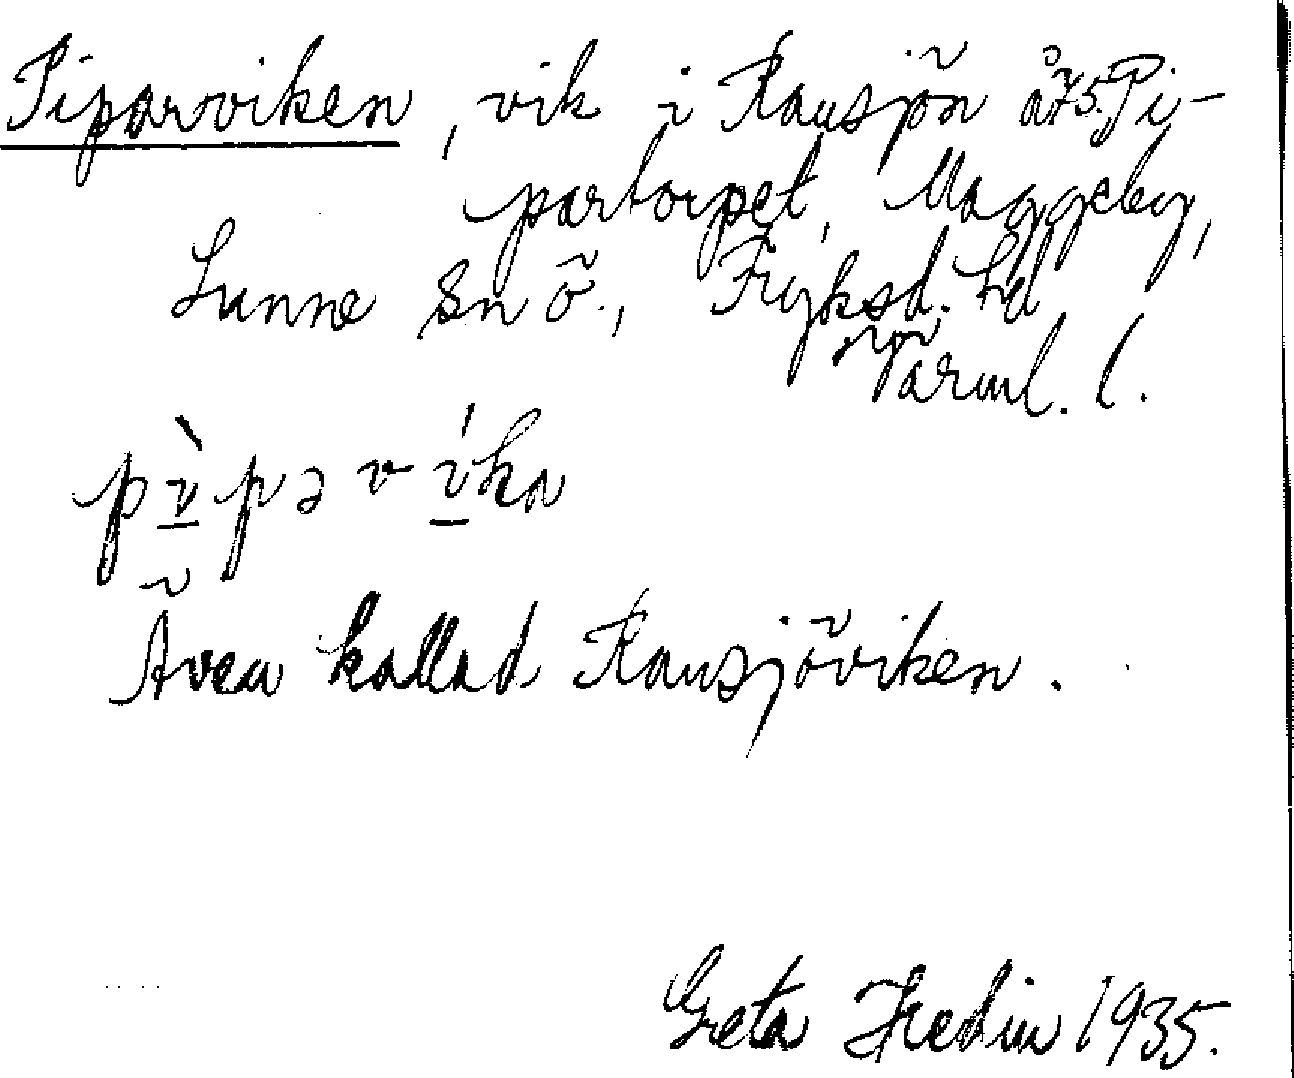 Piparviken, vik i Rausjön å 75. Pi-
partorpet, Maggeby,
Sunne sn ö., Fryksd. hd
Värml. l.
pìpəvíka
Även kallad Rausjöviken.
Greta Hedin 1935.